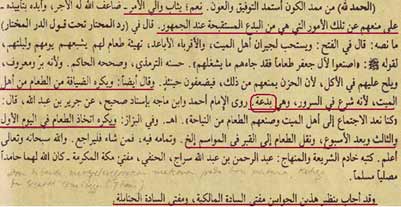 (الحمد لله) من ممد الكون أستمد التوفيق والعون. نعم؛ يثاب والي الأمر ـ ضاعف الله له الأجر، وأيده بتأييده ـ
على منعهم عن تلك الأمور التي هي من البدع المستقبحة عند الجمهور. قال في (رد المحتار تحت قول الدر المختار)
ما نصه: قال في الفتح: ويستحب لجيران أهل الميت، والأقرباء الأباعد، تهيئة طعام لهم يشبعهم يومهم وليلتهم،
لقوله ﷺ: «اصنعوا لآل جعفر طعاما فقد جاءهم ما يشغلهم». حسنه الترمذي، وصححه الحاكم. ولأنه بر ومعروف،
ويلح عليهم في الأكل، لأن الحزن يمنعهم من ذلك، فيضعفون حينئذ. وقال أيضا: ويكره الضيافة من الطعام من أهل
الميت، لأنه شرع في السرور، وهي بدعة. روى الإمام أحمد وابن ماجه بإسناد صحيح، عن جرير بن عبد الله، قال:
«كنا نعد الاجتماع إلى أهل الميت وصنعهم الطعام من النياحة». اهـ. وفي البزاز: ويكره اتخاذ الطعام في اليوم الأول
والثالث وبعد الأسبوع، ونقل الطعام إلى القبر في المواسم إلخ. وتمامه فيه، فمن شاء فليراجع. والله سبحانه وتعالى
أعلم. كتبه خادم الشريعة والمنهاج: عبد الرحمن بن عبد الله سراج، الحنفي، مفتي مكة المكرمة ـ كان الله لهما حامدا
مصليا مسلما.
وقد أجاب بنظير هذين الجوابين مفتي السادة المالكية، ومفتي السادة الحنابلة